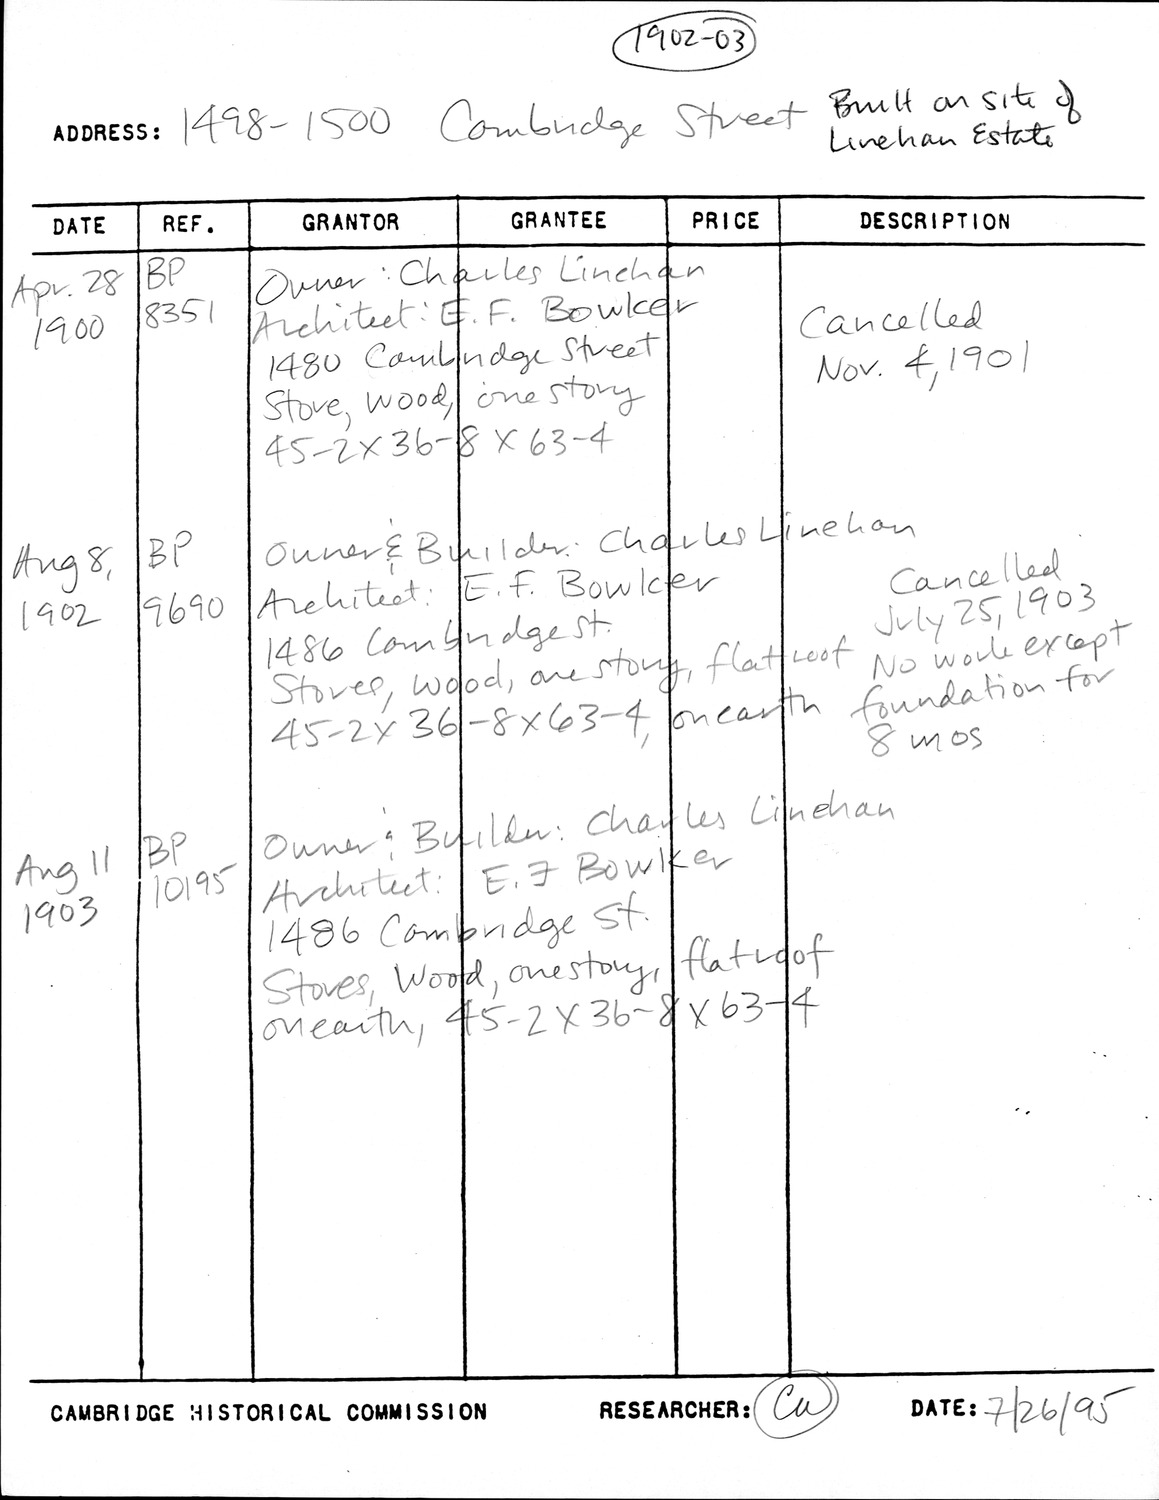 1902-03
ADDRESS: 1498-1500 Cambridge Street Built on site of
Linehan Estate
DATE REF. GRANTOR GRANTEE PRICE DESCRIPTION
Apr. 28
1900
BP
8351
Owner: Charles Linehan
Architect: E.F. Bowker
1480 Cambridge Street
Store, wood, one story
45-2 X 36-8 X 63-4
Cancelled
Nov. 4, 1901
Aug 8,
1902
BP
9690
Owner & Builder: Charles Linehan
Architect: E.F. Bowker
1486 Cambridge St.
Stores, wood, one story, flat roof
45-2 X 36-8 X 63-4, on earth
Cancelled
July 25, 1903
No work except
foundation for
8 mos
Aug 11
1903
BP
10195
Owner & Builder: Charles Linehan
Architect: E.F Bowker
1486 Cambridge St.
Stores, Wood, one story, flat roof
on earth, 45-2 X 36-8 X 63-4
CAMBRIDGE HISTORICAL COMMISSION RESEARCHER: CW DATE: 7/26/95